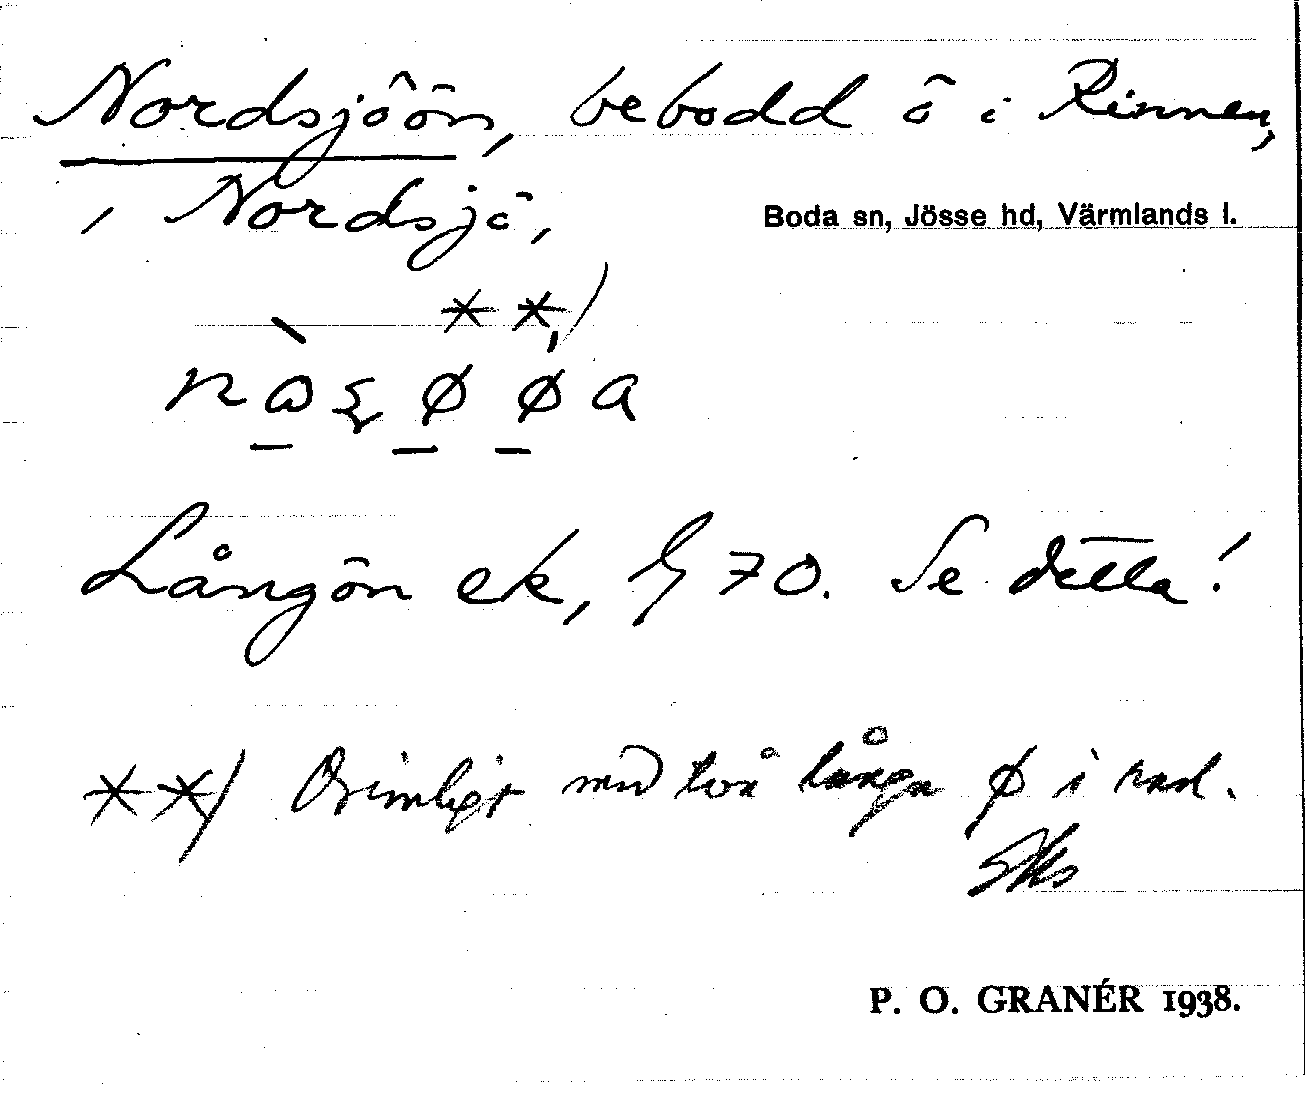 Nordsjöön, bebodd ö i Rinnen,
, Nordsjö,
Boda sn, Jösse hd, Värmlands l.
**)
Långön ek, G 70. Se detta!
**) Orimligt med två långa ø i rad.
P. O. GRANÉR 1938.